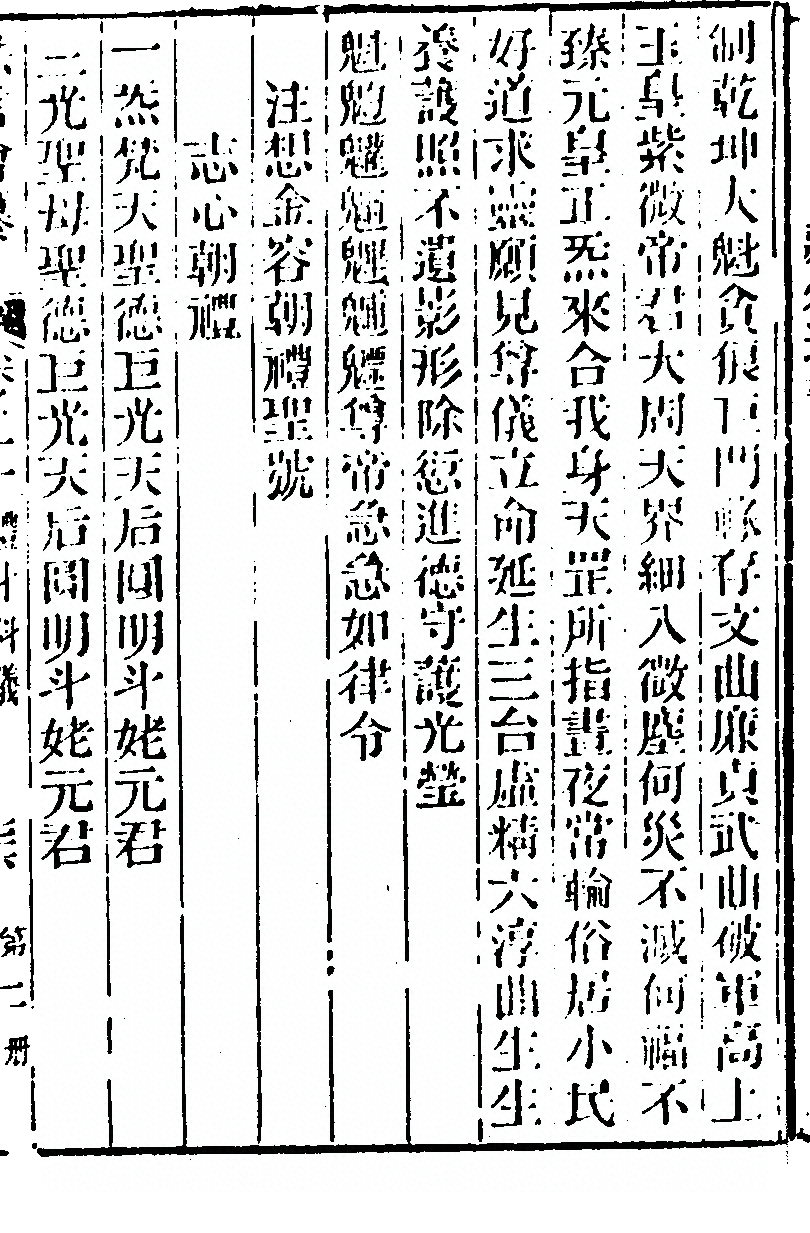 制乾坤大魁貪狼巨門祿存文曲廉貞武曲破軍高上
玉皇紫微帝君大周天界細入微塵何災不滅何福不
臻元皇正炁來合我身天罡所指晝夜常輪俗居小民
好道求靈願見尊儀立命延生三台虛精六淳曲生生
養護照不遺影形除愆進德守護光瑩
魁䰢䰡魓䰫䰨魒尊帝急急如律令
注想金容朝禮聖號
志心朝禮
一炁梵天聖德巨光天后圓明斗姥元君
二光聖母聖德巨光天后圓明斗姥元君
禮斗科儀
第一册